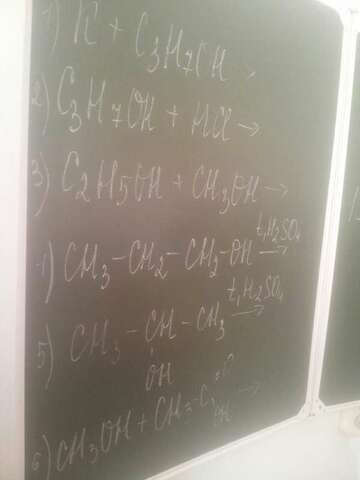 1) K + C3H7OH →
2) C3H7OH + HCl →
3) C2H5OH + CH3OH →
4) CH3-CH2-CH2-OH t, H2SO4 →
5) CH3-CH-CH3 t, H2SO4 →
OH
6) CH3OH + CH3-C =O →
OH